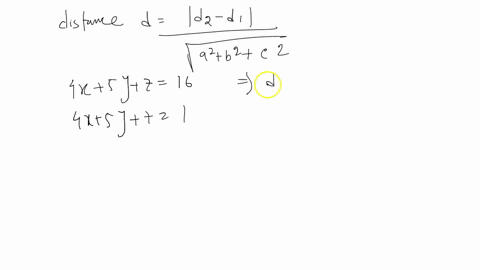 distance d = |d2-d1|
√a²+b²+c 2
4x+5y+z = 16 ⇒ d
4x+5y+z 2 1